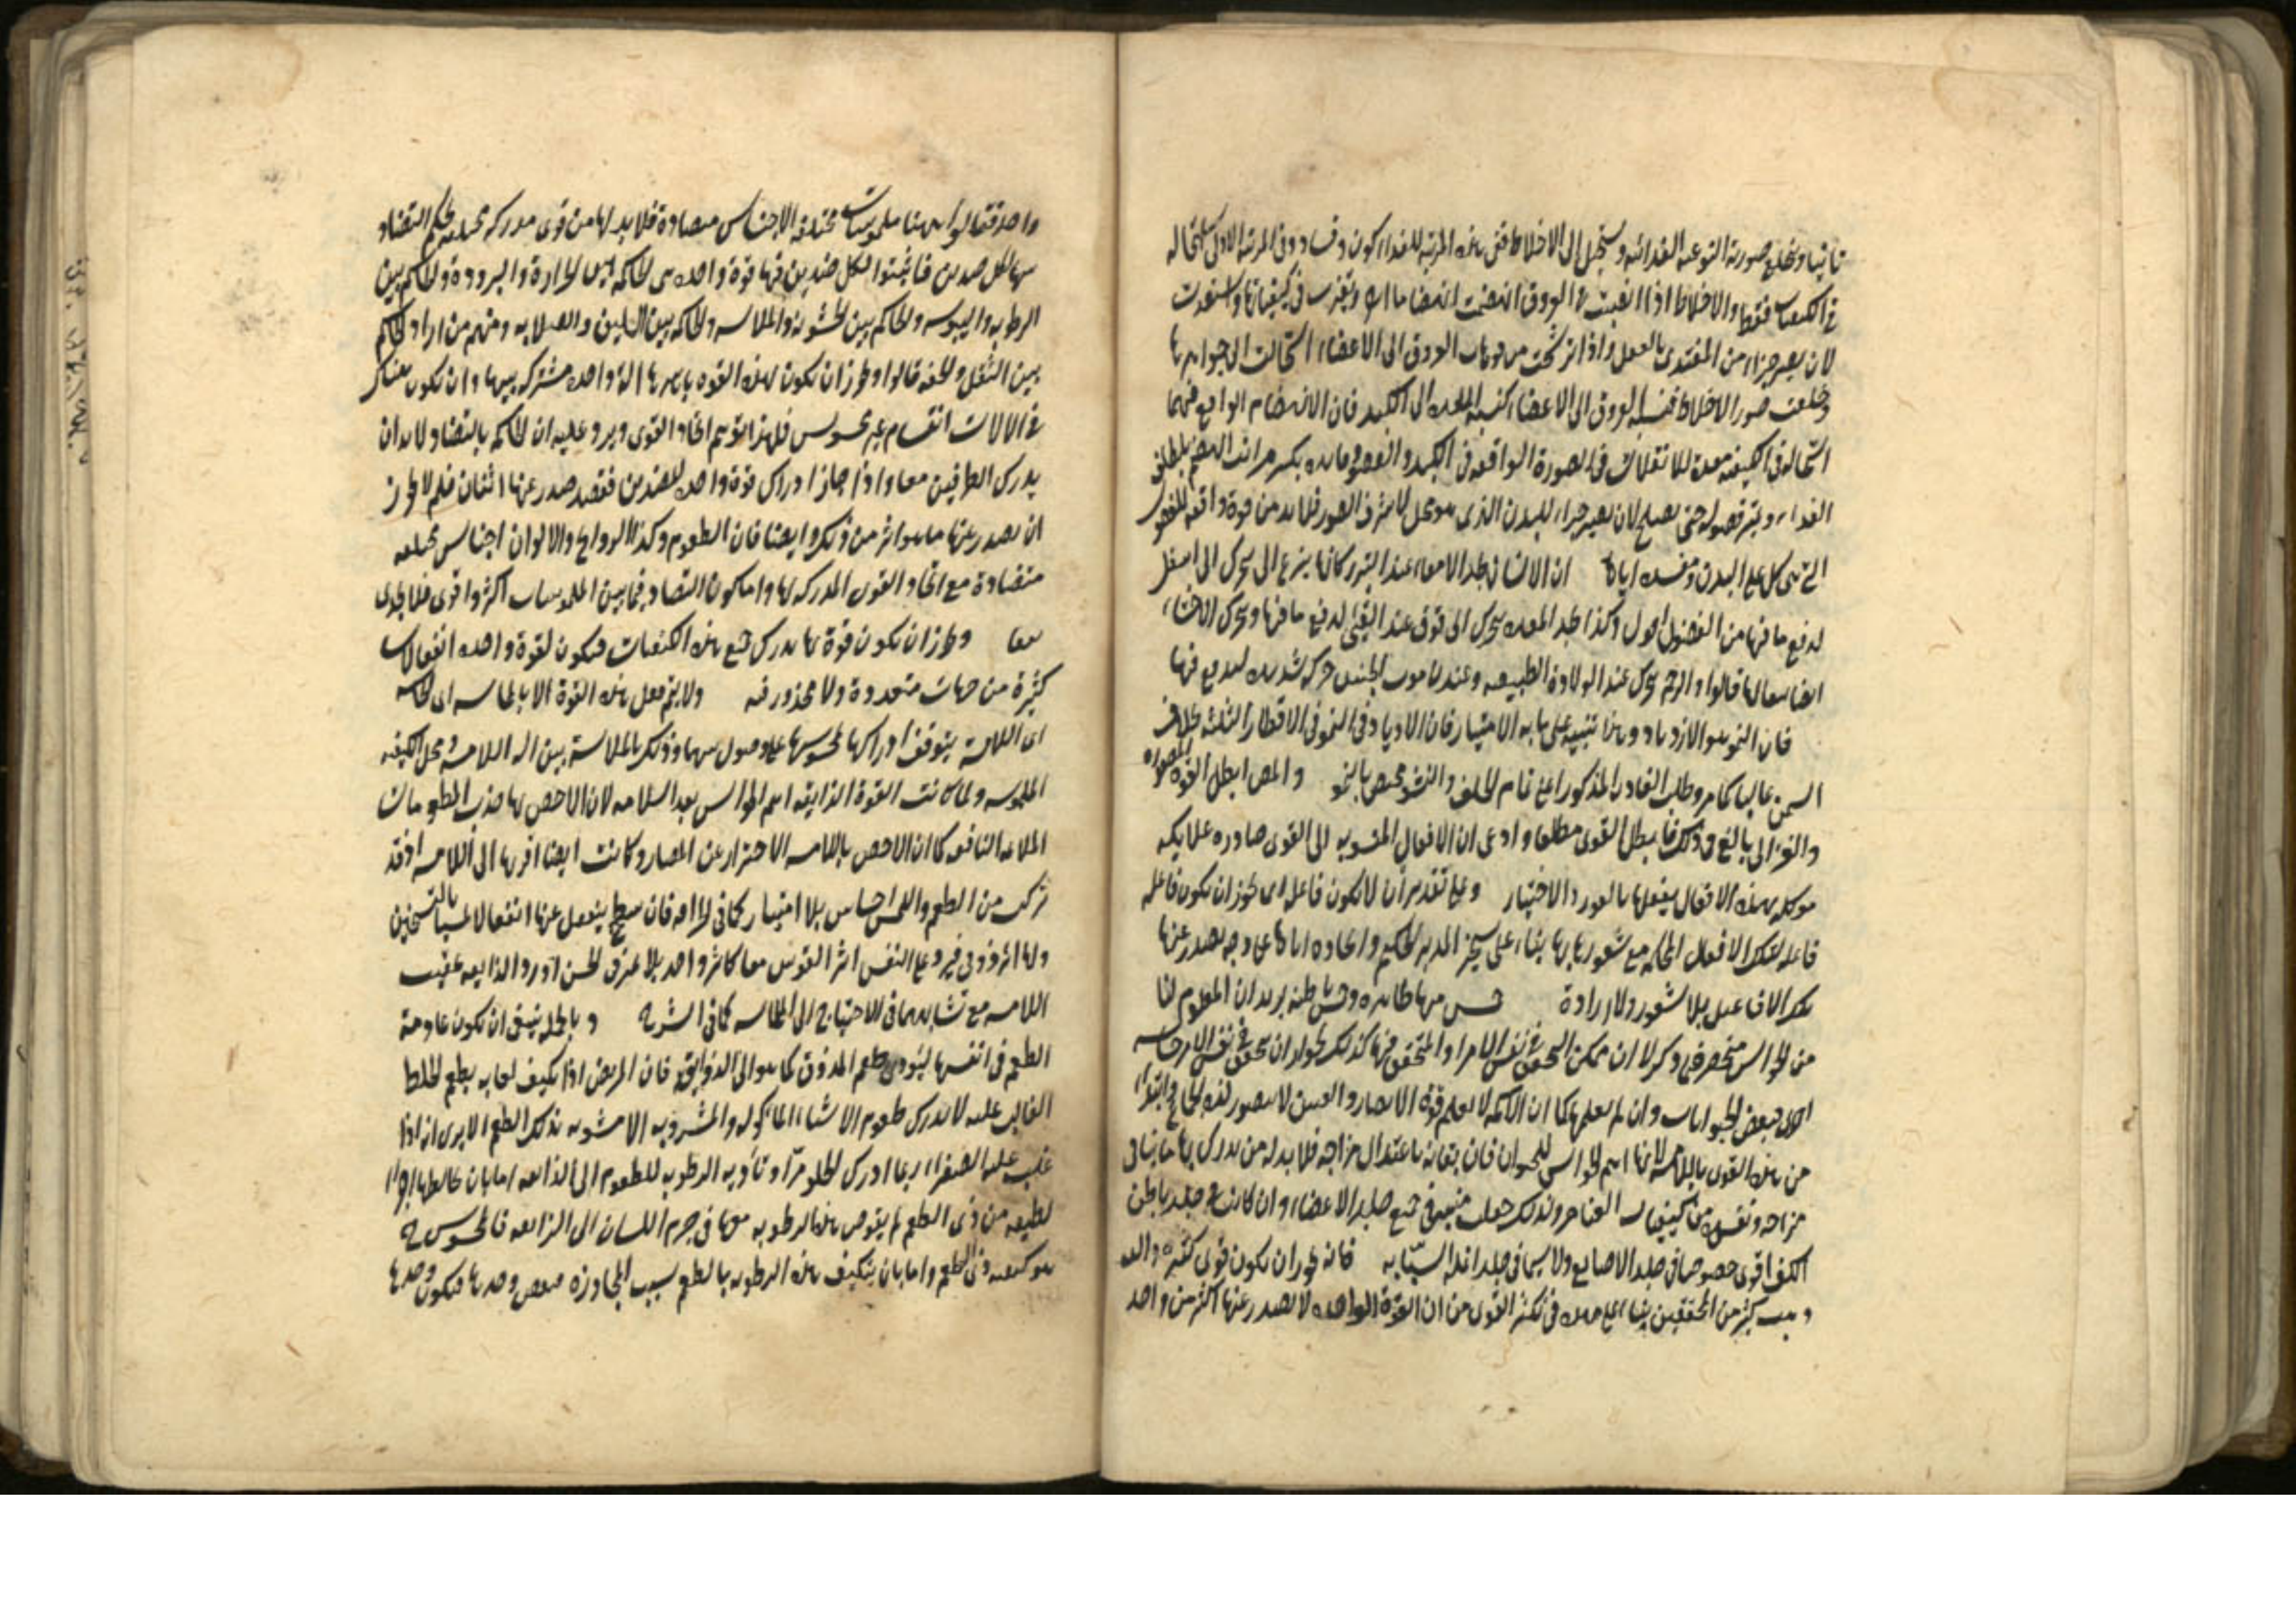 ثانيا وتخلع صورته النوعية الغذائية وتستحيل الى الاخلاط ففى هذه المرتبة للغذاء كون وفساد وفى المرتبة الاولى استحالة
فى الكيفيات فقط والاخلاط اذا انصبت فى العروق انهضمت انهضاما اخر وتغيرت فى كيفياتها واستعدت
لان يصير جزءا من المغتدى بالفعل واذا ترشحت من فوهات العروق الى الاعضاء استحالت الى جواهرها
وخلعت صور الاخلاط فنسبة العروق الى الاعضاء كنسبة المعدة الى الكبد فان الانهضام الواقع فيهما
استحالة فى الكيفية معدة للانقلاب فى الصورة الواقعة فى الكبد والعضو
الغذاء وتميز فضوله حتى يصلح لان يصير جزءا للبدن الذى هو محل لاشرف الصور فلا بد من قوة دافعة للفضول
التى هى كل على البدن ومفسدة اياه ان الانسان يجد الامعاء عند التبرز كانها ينزع الى تتحرك الى اسفل
لدفع ما فيها من الفضول وكذا يجد المعدة تتحرك الى فوق عند القئ لدفع ما فيها وتتحرك الاحشاء
ايضا تبعا لها قالوا والرحم تتحرك عند الولادة الطبيعية وعند موت الجنين حركة شديدة لدفع ما فيها
فان النمو هو الازدياد وهذا تنبيه على ما به الامتياز فان الازدياد فى النمو فى الاقطار الثلثة بخلاف
السمن غالبا كما مر وطلب الغاذية المذكور اعنى تمام الخلق والنشو مختص بالنمو والمص ابطل القوة المصورة
والغزالى بالغ فى ذلك فابطل القوى مطلقا وادعى ان الافعال المنسوبة الى القوى صادرة عن ملايكة
موكلة بهذه الافعال يفعلها بالشعور والاختيار وعلى تقدير ان لا يكون فاعلة اى يجوز ان يكون فاعلة
فاعلة لتلك الافعال المحكمة مع شعورها بها بناء على تسخير المدبر الحكيم وايجاده اياها على وجه يصدر عنها
تلك الافاعيل بلا شعور ولا ارادة خمس منها ظاهرة وخمس باطنة يريد ان المعلوم لنا
من الحواس منحصر فى وذكر لا ان ممكن التحقق فى نفس الامر او المتحقق فيها كذلك لجواز ان يتحقق فى نفس الامر حاسة
اخرى لبعض الحيوانات وان لم نعلمها كما ان الاكمه لا يعلم قوة الابصار والعنين لا يتصور لذة الجماع وابتدأ
من هذه القوى باللامسة لانها اهم الحواس للحيوان فان بقاءه باعتدال مزاجه فلا بد له من ان يدرك بها ما ينافى
مزاجه وتفسده من كيفيات العناصر ولذلك جعلت منبثة فى جميع جلد الاعضاء وان كانت فى جلد باطن
الكف اقوى خصوصا فى جلد الاصابع ولا سيما فى جلد انملة السبابة فانه يجوز ان يكون قوى كثيرة واليه
ذهب كثير من المحققين بناء على فى تكثر القوى من ان القوة الواحدة لا يصدر عنها اكثر من واحد
واحد فقالوا ههنا ملموسات مختلفة الاجناس متضادة فلا بد لها من قوى مدركة مختلفة يحكم بالتضاد
بينها لكل ضدين فاثبتوا لكل ضدين منها قوة واحدة هى الحاكمة بين الحرارة والبرودة والحاكم بين
الرطوبة واليبوسة والحاكم بين الخشونة والملاسة والحاكمة بين اللين والصلابة ومنهم من زاد الحاكم
بين الثقل والخفة قالوا ويجوز ان يكون لهذه القوة باسرها الة واحدة مشتركة بينها وان يكون هناك
فى الالات انقسام غير محسوس فلهذا توهم اتحاد القوى ويرد عليه ان الحاكم بالتضاد لا بد ان
يدرك الطرفين معا واذا جاز ادراك قوة واحدة للضدين فقد صدر عنها اثنان فلم لا يجوز
ان يصدر عنها ما هو اكثر من ذلك وايضا فان الطعوم وكذا الروايح والالوان اجناس مختلفة
متضادة مع اتحاد القوى المدركة لها واما كون التضاد فيما بين الملموسات اكثر واقوى فلا يجدى
نفعا ويجوز ان يكون قوة بها يدرك جميع هذه الكيفيات فيكون لقوة واحدة انفعالات
كثيرة من جهات متعددة ولا محذور فيه ولا يتم فعل هذه القوة الا بالمماسة اى الحاسة
اى اللامسة يتوقف ادراكها لمحسوسها على وصول بينهما وذلك بالملامسة بين الة اللامسة ومحل الكيفية
الملموسة ولما كانت القوة الذايقة اهم الحواس بعد اللامسة لان الاخص بها جذب المطعومات
الملائمة النافعة كما ان الاخص باللامسة الاحتراز عن المضار وكانت ايضا اقربها الى اللامسة اذ قد
تركب من الطعم واللمس احساس بلا امتياز كما فى الحرافة فان سطح ينفعل عنها انفعالا لمسيا بالتسخين
ولها اثر ذوقى فيرد على النفس اثر القوتين معا كاثر واحد بلا تميز فى الحس اورد الذايقة عقيب
اللامسة مع تشابههما فى الاحتياج الى المماسة كما فى الشرح وبالجملة ينبغى ان يكون عادمة
الطعم فى نفسها ليؤدى طعم المذوق كما هو الى الذايقة فان المريض اذا تكيف لعابه بطعم الخلط
الغالب عليه لا يدرك طعوم الاشياء الماكولة والمشروبة الا مشوبة بذلك الطعم الا يرى انه اذا
غلب عليه الصفراء ربما ادرك الحلو مرا وتأدية الرطوبة للطعوم الى الذايقة اما بان يخالطها اجزاء
لطيفة من ذى الطعم ثم يغوص هذه الرطوبة معها فى جرم اللسان الى الذايقة فالمحسوس ح
هو كيفية ذى الطعم واما بان يتكيف هذه الرطوبة بالطعم بسبب المجاورة فيغوص وحدها فيكون وحدها